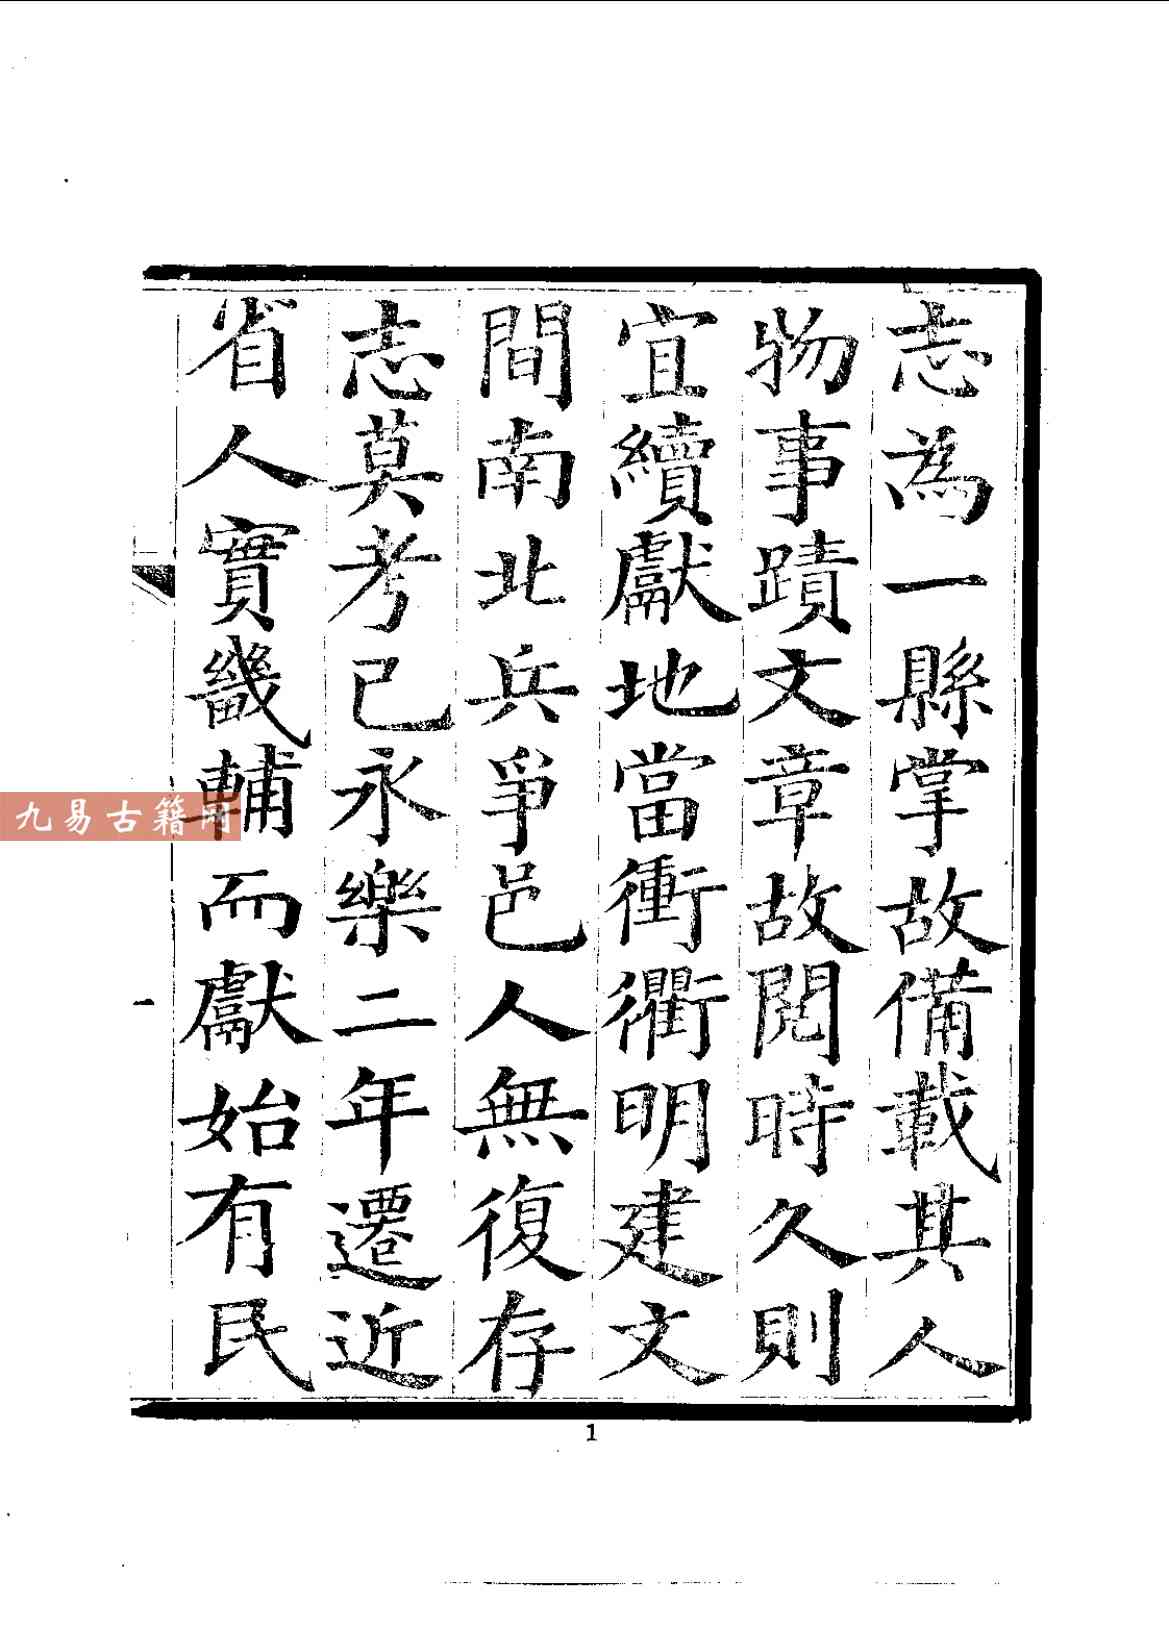 志為一縣掌故備載其人
物事蹟文章故閱時久則
宜續獻地當衝衢明建文
間南北兵爭邑人無復存
志莫考已永樂二年遷近
省人實畿輔而獻始有民
一
九易古籍网
1